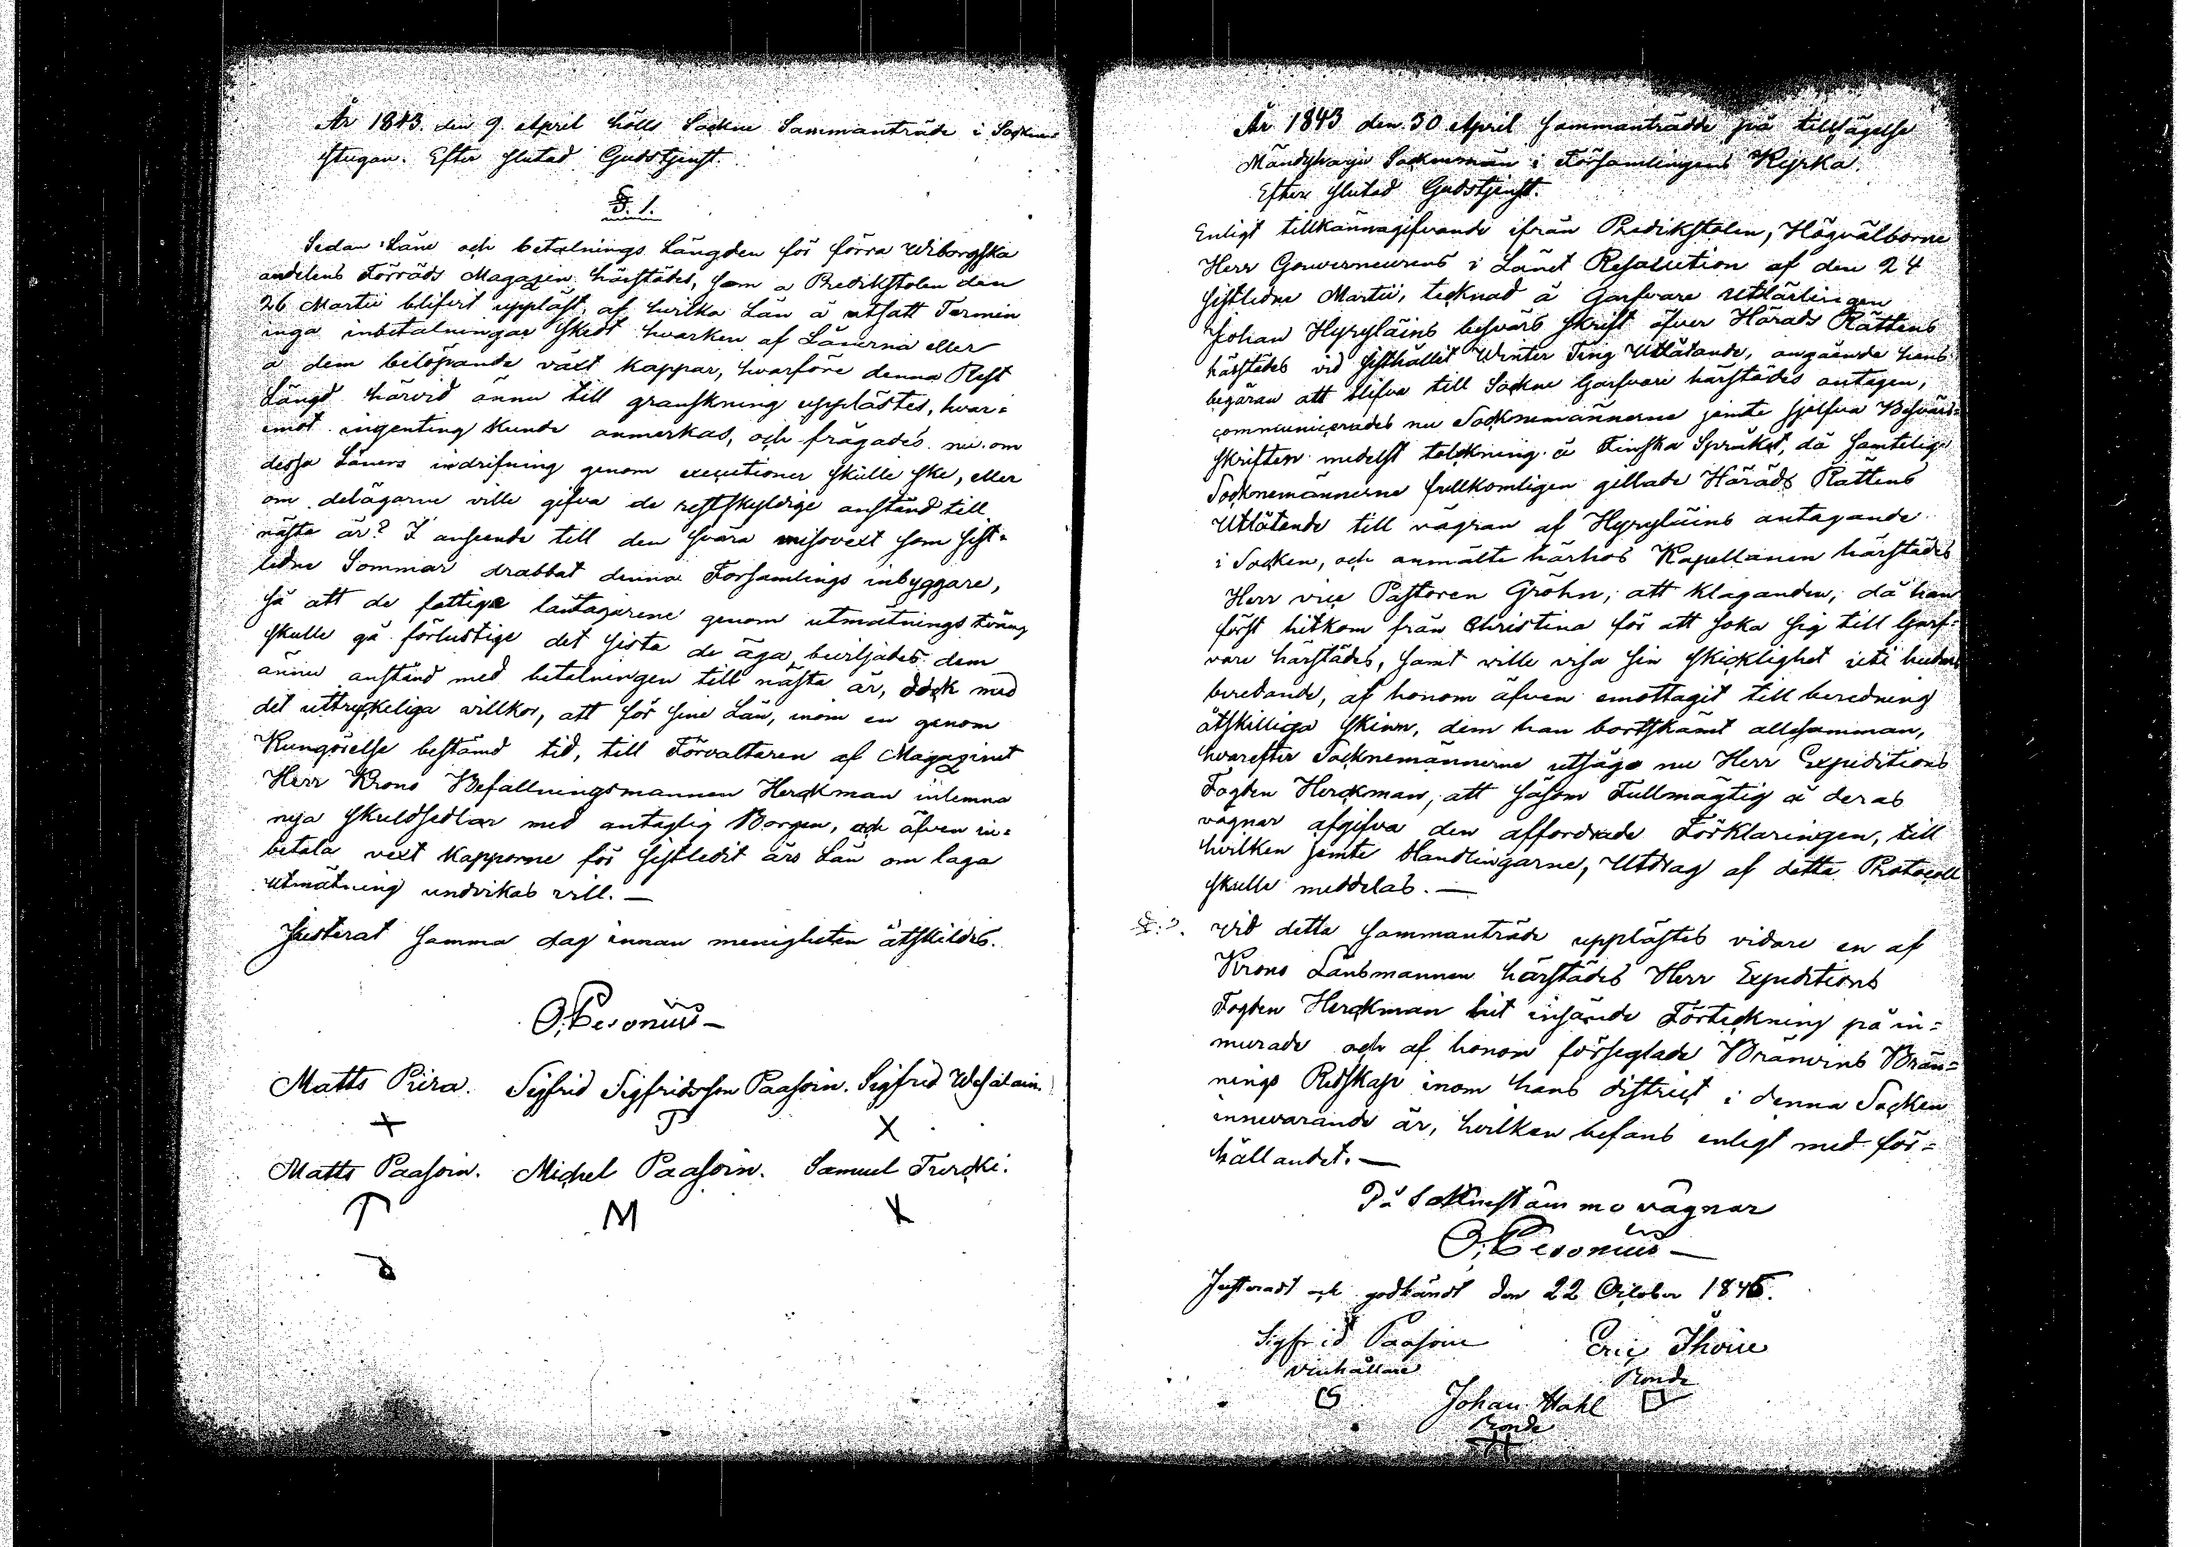 År 1843. den 9. April hölls Sockne Sammanträde i Sockne
stugan. Efter slutad Gudstjenst.
§. 1.
Sedan Låne och betalnings Längden för förra Wiborgska
andelens Förråds Magazen härstädes, som a Predikstolen den
26 Martii blifvit uppläst, af hvilka Lån å utsatt Termin
inga inbetalningar skedt hvarken af Lånerna eller
å dem belöpande växt kappar, hvarföre denna Rest
Längd härvid ännu till granskning upplästes, hvar-
emot ingenting kunde anmerkas, och frågades nu om
dessa Låners indrifning genom executioner skulle ske, eller
om delägarne ville gifva de restskyldige anstånd till
nästa år? I anseende till den svåra missvext som sist-
ledne Sommar drabbat denna Församlings inbyggare,
så att de fattiga låntagarene genom utmätnings tvång
skulle gå förlustige det sista de äga beviljades dem
ännu anstånd med betalningen till nästa år, dock med
det uttryckeliga villkor, att för sine Lån, inom en genom
Kungörelse bestämd tid, till Förvaltaren af Magazinet
Herr Krono Befallningsmannen Herckman inlemna
nya skuldsedlar med antaglig Borgen, och äfven in-
betala vext Kapparne för sistledit års Lån om laga
utmätning undvikas vill. —
Justerat samma dag innan menigheten åtskildes.
O. Cesonius —
Matts Piira. Sigfrid Sigfridsson Paasoin. Sigfrid Wesalain.
Matts Paasoin. Michel Paasoin. Samuel Turcki.
M
År 1843 den 30 April sammanträdde på tillsägelse
Mändyharju Socknemän i Församlingens Kyrka.
Efter slutad Gudstjenst.
Enligt tillkännagifvande ifrån Predikstolen, Högvälborne
Herr Gouverneurens i Länet Resolution af den 24
sistledne Martii, tecknad å Garfvare Utlärlingen
Johan Hyryläins besvärs skrift öfver Härads Rättens
härstädes vid sisthållit Winter Ting Utlåtande, angående hans
begäran att blifva till Sockne Garfvare härstädes antagen,
communicerades nu Socknemännerne jemte sjelfva Besvärs-
skriften medelst tolckning å Finska Språket, då samtelige
Socknemännerne fullkomligen gillade Härads Rättens
Utlåtende till vägran af Hyryläins antagande
i Socken, och anmälte härhos Kapellanen härstädes
Herr vice Pastoren Gröhn, att klaganden, då han
först hitkom från Christina för att söka sig till Garf-
vare härstädes, samt ville visa sin skicklighet uti huders
beredande, af honom äfven emottagit till beredning
åtskilliga skinn, dem han bortskämt allesamman,
hvarefter Socknemännerne utsågo nu Herr Expeditions
Fogden Herckman, att såsom Fullmägtig å deras
vägnar afgifva den affordrade Förklaringen, till
hvilken jemte Handlingarne, Utdrag af detta Protocoll
skulle meddelas. —
§. 2. Vid detta sammanträde upplästes vidare en af
Krono Länsmannen härstädes Herr Expeditions
Fogden Herckman hit insände Förteckning på in-
murade och af honom förseglade Bränvins Brän-
nings Redskap inom hans district i denna Socken
innevarande år, hvilken befans enligt med för-
hållandet. —
På Socknestämmo vägnar
O. Cesonius —
Justeradt och godkändt den 22 October 1845.
Sigfrid Paasoin Eric Ihoin
Bonde
Johan Hahl
Bonde